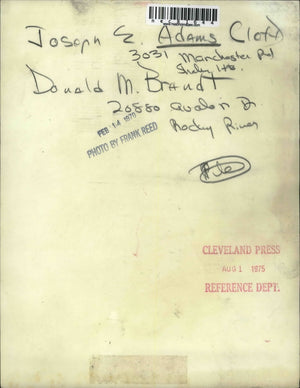 Joseph E. Adams Cloyd
3031 Manchester Rd
Shaky Hts.
Donald M. Brandt
20880 Avalon Dr.
Rocky River
FEB 14 1970
PHOTO BY FRANK REED
File
CLEVELAND PRESS
AUG 1 1975
REFERENCE DEPT.